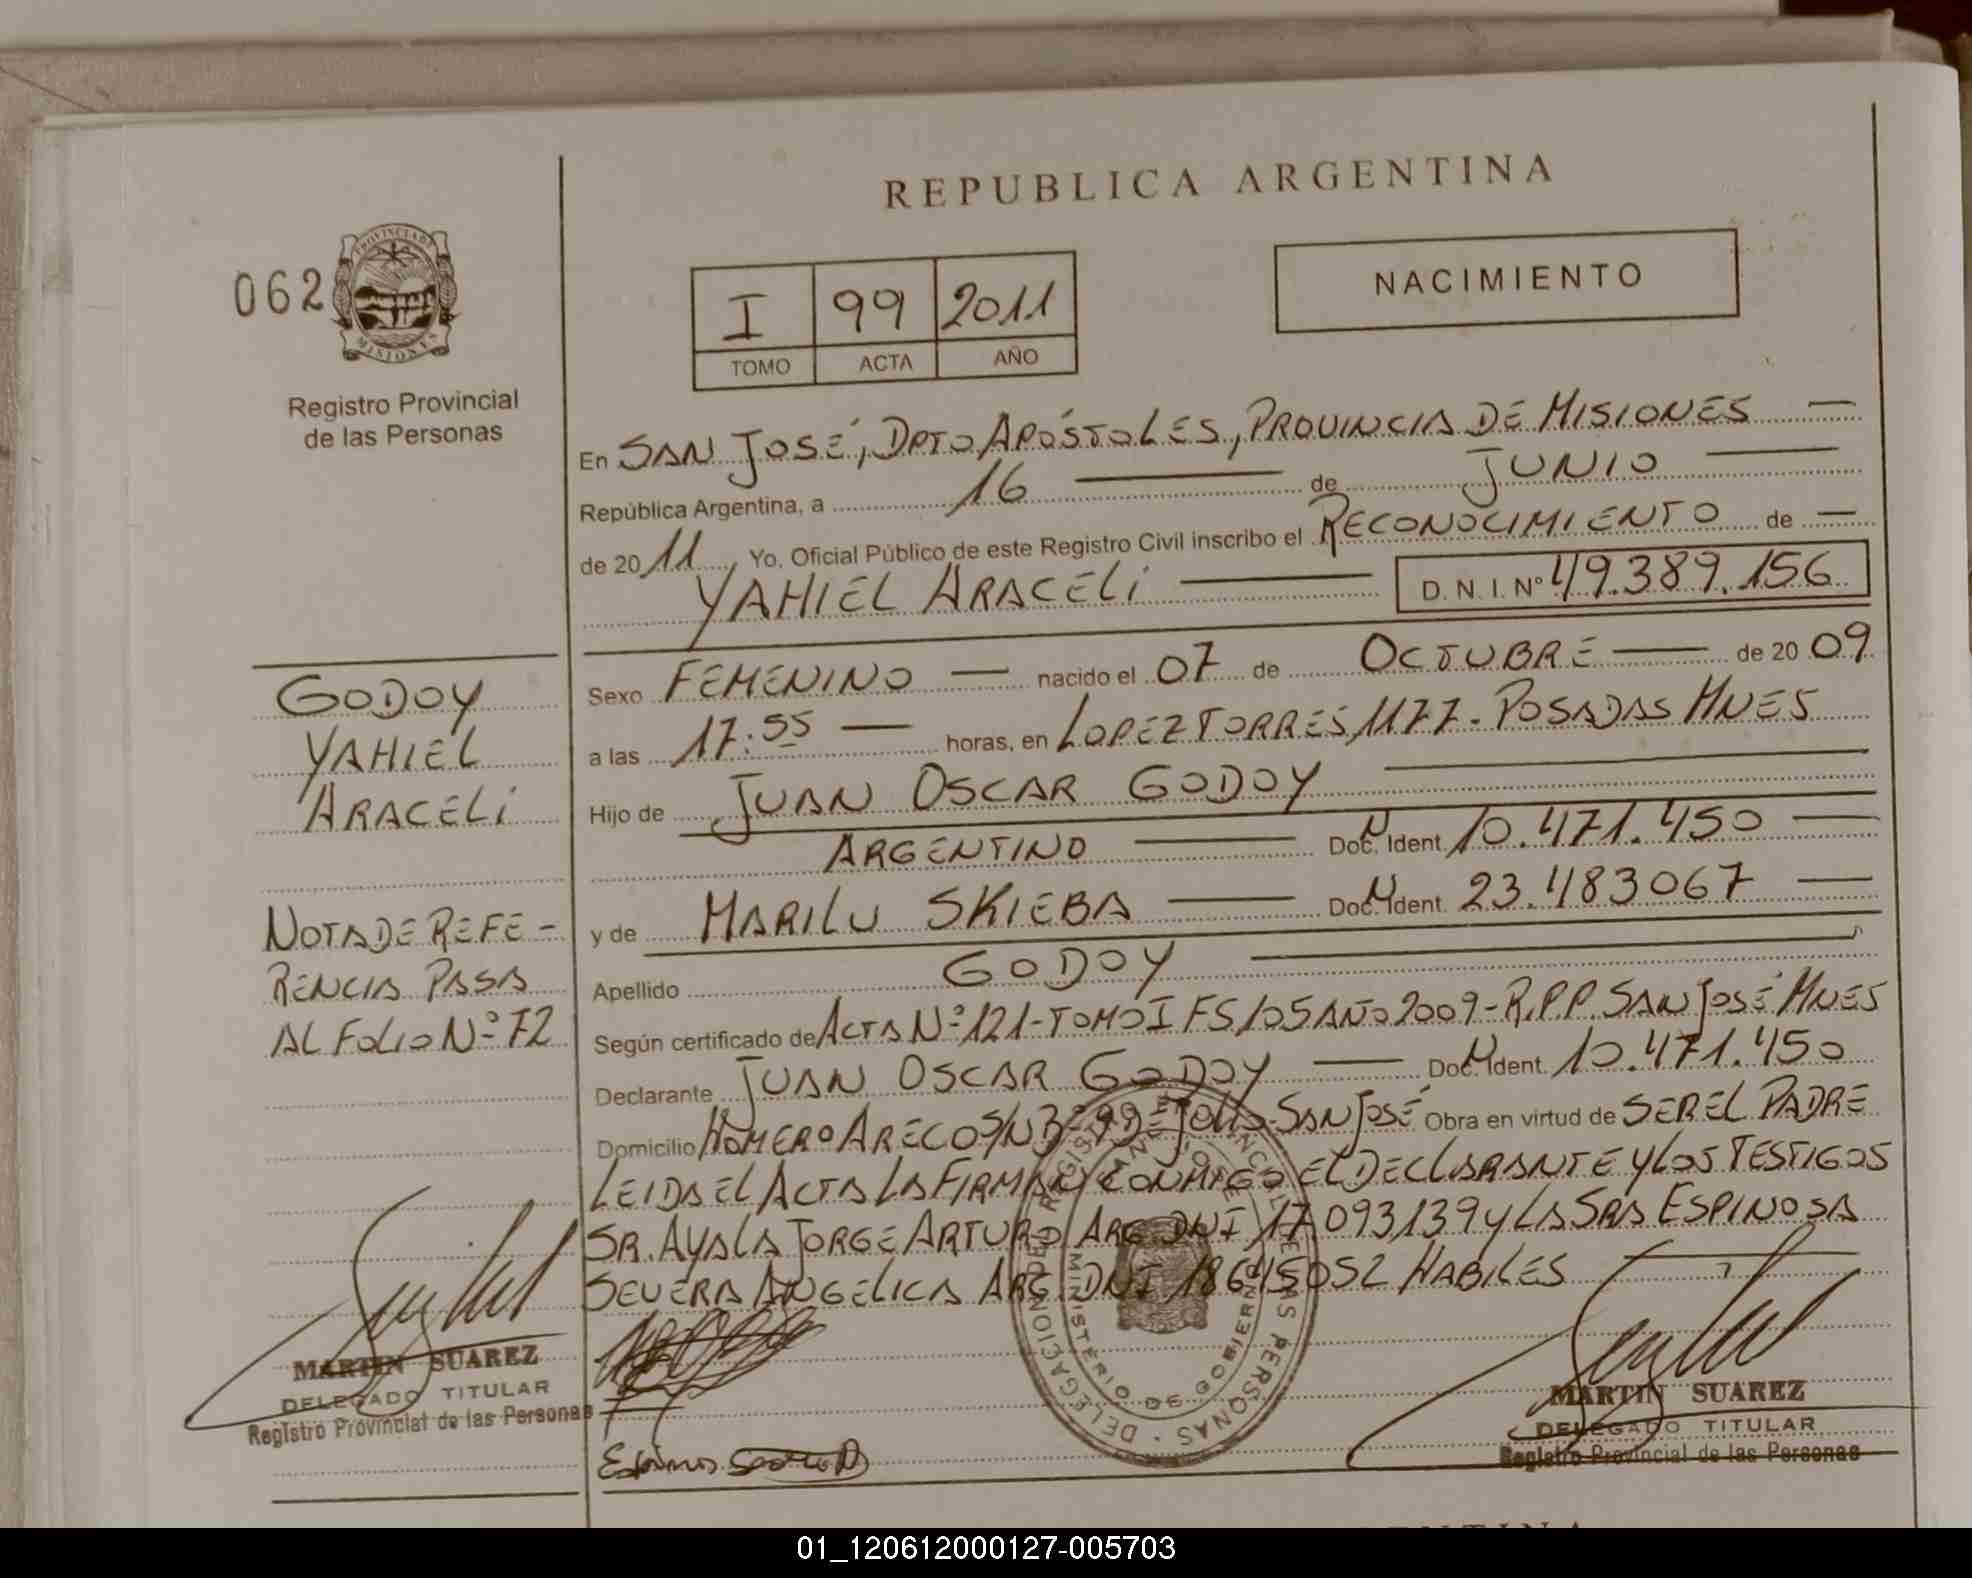 REPUBLICA ARGENTINA
062
PROVINCIA DE
MISIONES
Registro Provincial
de las Personas
I 99 2011
TOMO ACTA AÑO
NACIMIENTO
En SAN JOSÉ, DPTO APÓSTOLES, PROVINCIA DE MISIONES —
República Argentina, a 16 — de JUNIO —
de 2011, Yo, Oficial Público de este Registro Civil inscribo el RECONOCIMIENTO de —
YAHIEL ARACELI — D. N. I. Nº 49.389.156
Sexo FEMENINO — nacido el 07 de OCTUBRE — de 2009
a las 17:55 — horas, en LOPEZ TORRES 1177 - POSADAS MNES
Hijo de JUAN OSCAR GODOY —
ARGENTINO — Doc. Ident. 10.471.450 —
y de MARILU SKIEBA — Doc. Ident. 23.483067 —
Apellido GODOY —
Según certificado de ACTA Nº 121 - TOMO I FS 105 AÑO 2009 - R.P.P. SAN JOSÉ MNES
Declarante JUAN OSCAR GODOY — Doc. Ident. 10.471.450
Domicilio HOMERO ARECO S/N Bº SAN JOSÉ Obra en virtud de SER EL PADRE
LEIDA EL ACTA LA FIRMAN CONMIGO EL DECLARANTE Y LOS TESTIGOS
SR. AYALA JORGE ARTURO ARG DNI 17.093139 Y LA SRA ESPINOSA
SEVERA ANGELICA ARG. DNI 18645052 HABILES
GODOY
YAHIEL
ARACELI
NOTA DE REFE-
RENCIA PASA
AL FOLIO Nº 72
MARTIN SUAREZ
DELEGADO TITULAR
Registro Provincial de las Personas
MINISTERIO DE GOBIERNO
MARTIN SUAREZ
DELEGADO TITULAR
Registro Provincial de las Personas
01_120612000127-005703